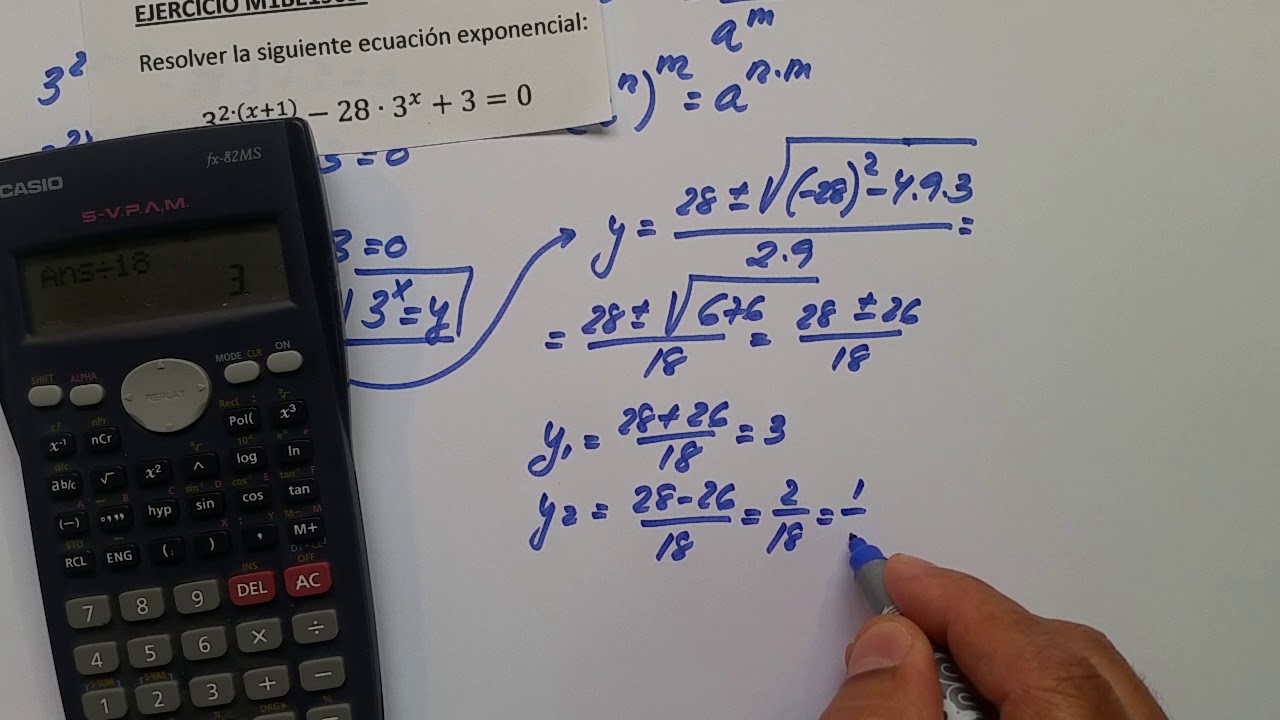 Resolver la siguiente ecuación exponencial:
3^{2·(x+1)} − 28 · 3^x + 3 = 0
3^2
a^m
)^m = a^{n·m}
= 0
3 = 0
3^x = y
y = \frac{28 ± \sqrt{(-28)^2 - 4.9.3}}{2.9} =
= \frac{28 ± \sqrt{676}}{18} = \frac{28 ± 26}{18}
y_1 = \frac{28 + 26}{18} = 3
y_2 = \frac{28 - 26}{18} = \frac{2}{18} = \frac{1}{
CASIO
fx-82MS
S-V.P.A.M.
Ans÷18
3
MODE CLR ON
SHIFT ALPHA
REPLAY
x^-1 nCr Pol( x³
ab/c √ x² ^ log ln
(−) °,,, hyp sin cos tan
RCL ENG ( ) , M+
STO INS OFF
7 8 9 DEL AC
4 5 6 × ÷
1 2 3 + −